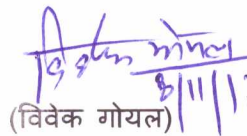 विवेक गोयल
(विवेक गोयल)